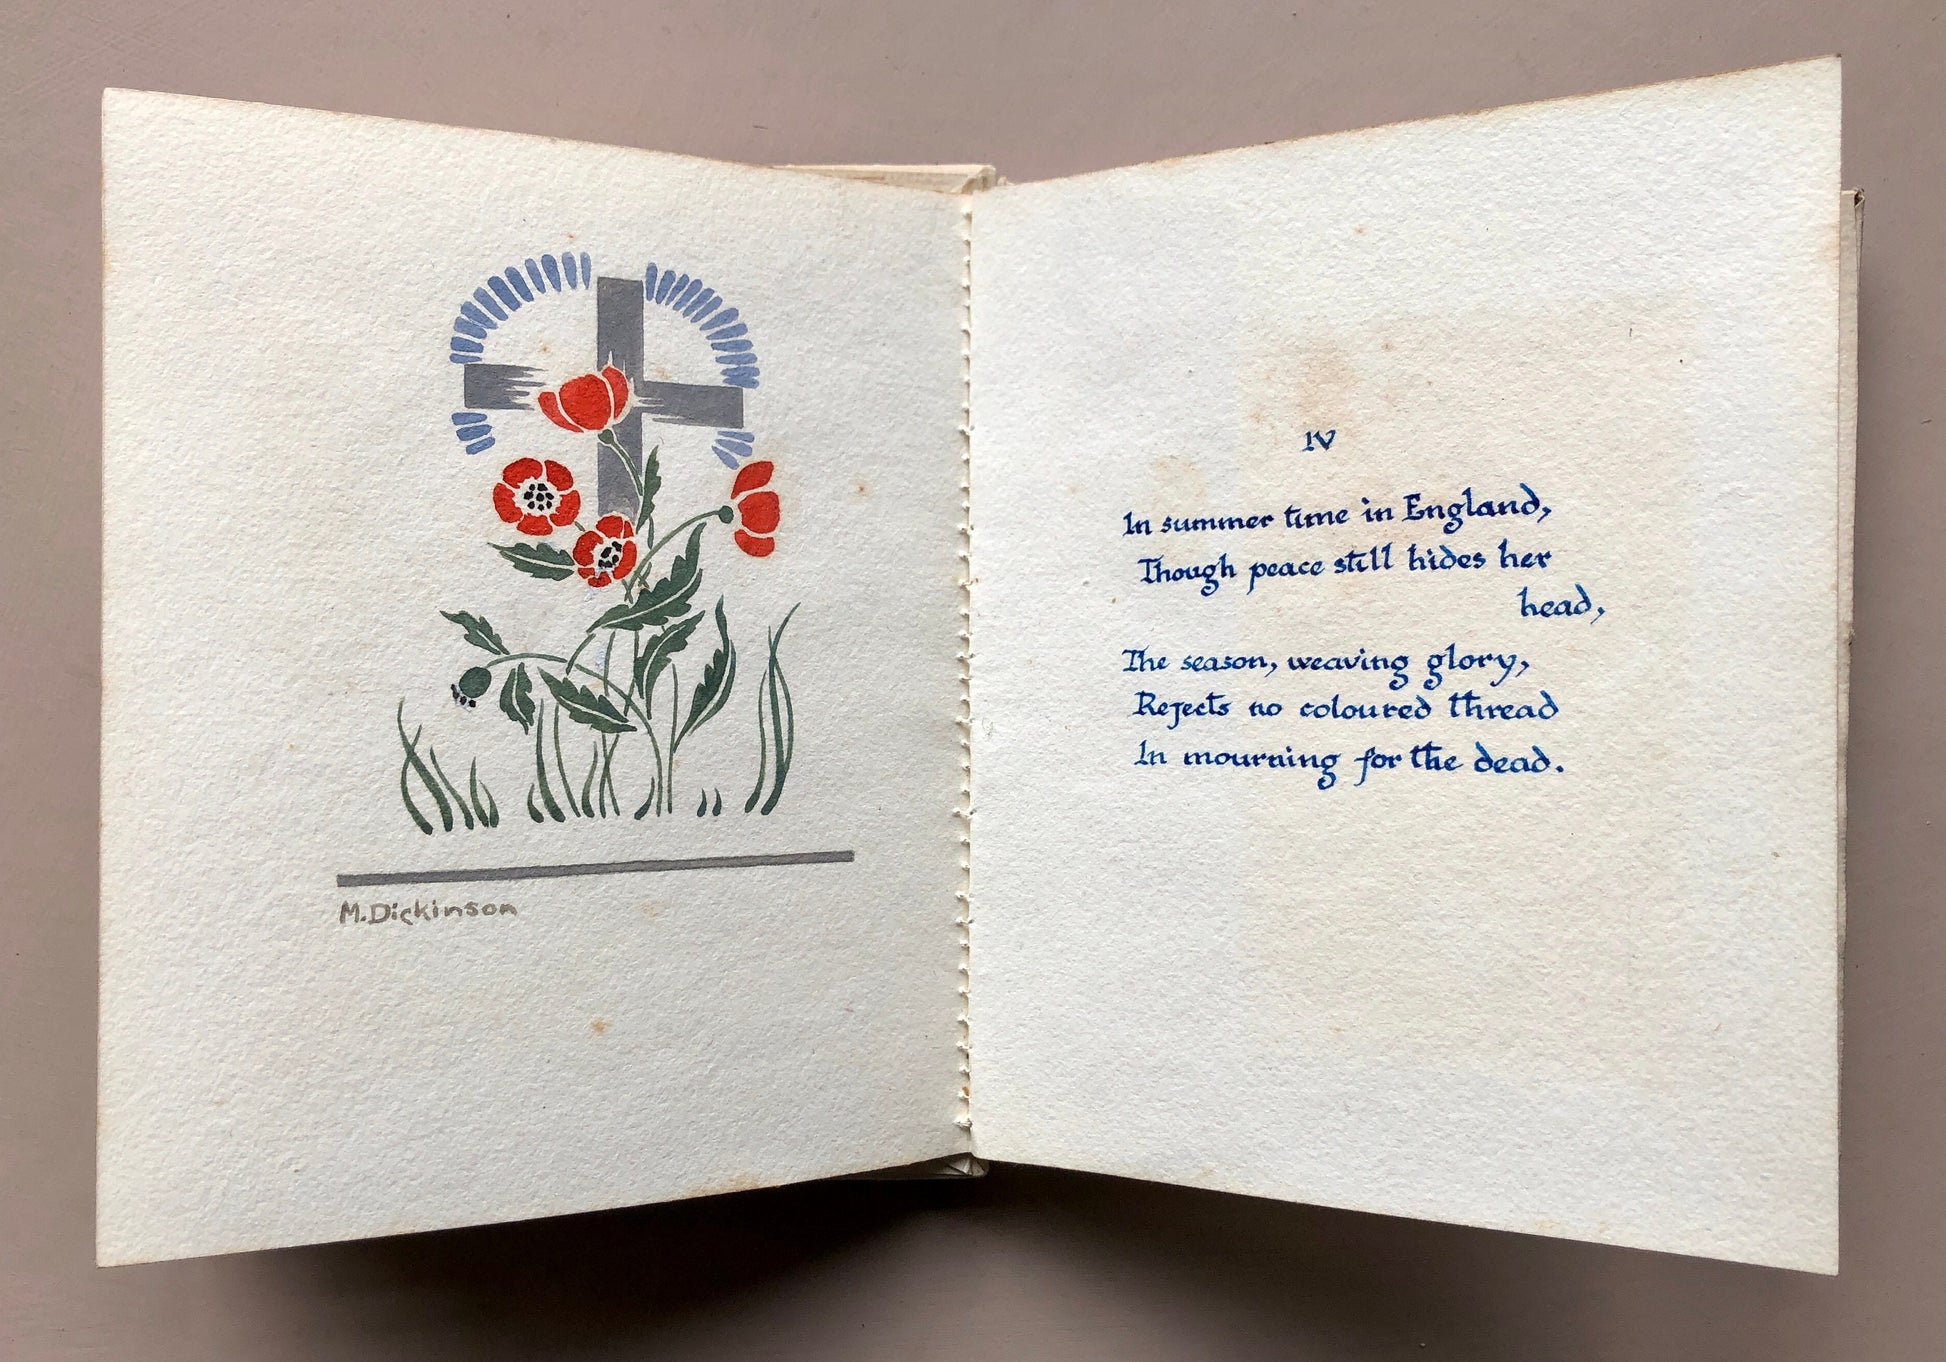 M. Dickinson
IV
In summer time in England,
Though peace still hides her
head,
The season, weaving glory,
Rejects no coloured thread
In mourning for the dead.